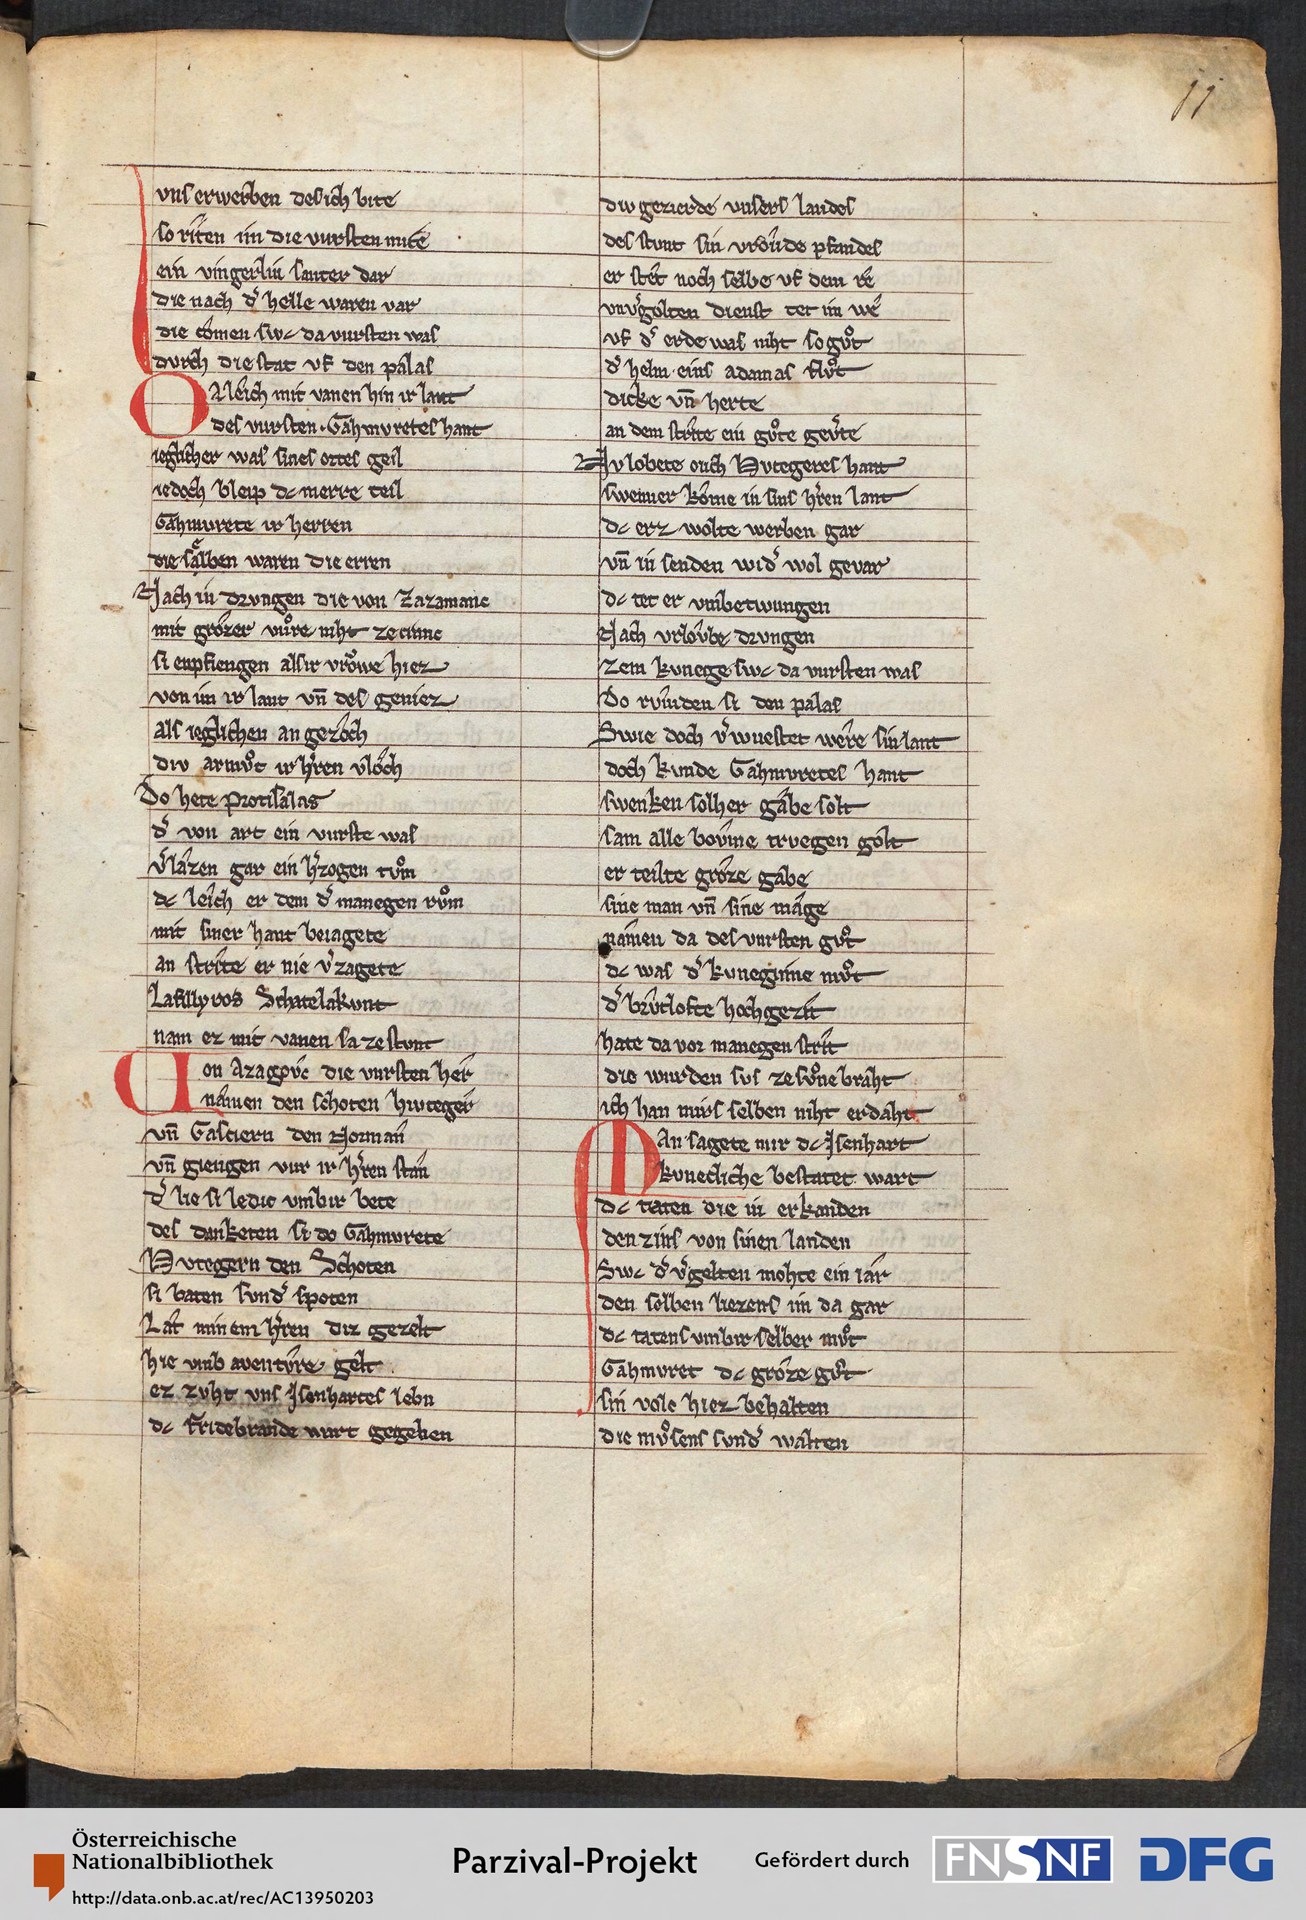 11
vnſ erwerben deſ ich bite
ſo riten im die vurſten mite
ein vingerlin ſanter dar
die nach dˢ helle waren var
die chomen ſwc da vurſten was
durch die ſtat vf den palas
Do leich mit vanen hin ir lant
des vurſten · Gahmuretes hant
ieglicher was ſines ortes geil
iedoch bleip dc merre teil
Gahmurete ir herren
die ſælben waren die erren
Nach in drvngen die von zazamanc
mit grozer vuͦre niht ze cranc
ſi enpfiengen alſ ir vroͮwe hiez
von im ir lant vn̄ des geniez
als ieglichen an gezoch
div armuͦt ir hˢren vloch
Do hete protiſalas
dˢ von art ein vurſte was
vˢlazen gar ein hˢzogen tuͦm
dc leich er dem dˢ manegen ruͦm
mit ſiner hant beiagete
an ſtrite er nie vˢzagete
Lafillyros Schatelakunt
nam ez mit vanen ſa ze ſtunt
Von Azagovc die vurſten her
namen den ſchoten hivteger
vn̄ Gaſciern den Norman
vn̄ giengen vur ir hˢren ſtan
dˢ lie ſi ledic vmb ir bete
des danketen ſi do Gahmurete
Hvtegern den Schoten
ſi baten ſundˢ ſpoten
Lat minem hˢren diz gezelt
hie vmb aventvre gelt
ez zvht vns Iſenhartes lebn
dc Fridebrande wart gegeben
div gezierde vnſers landes
des ſtunt ſin vroͮude pfandes
er ſtet noch ſelbe vf dem re
vnvˢgolten dienſt tet im we
vf dˢ erde was niht ſo guͦt
dˢ helm · eins adamas fluͦt
dicke vn̄ herte
an dem ſtrite ein guͦte geverte
Do lobete ouch Hvtegeres hant
ſwenner kome in ſins hˢren lant
dc erz wolte werben gar
vn̄ in ſenden widˢ wol gevar
dc tet er vnbetwungen
Nach vrloube drvngen
zem kunege ſwc da vurſten was
Do rvmden ſi den palas
Swie doch vˢwueſtet were ſin lant
doch kunde Gahmuretes hant
ſwenken ſolher gabe ſolt
ſam alle bovme truegen golt
er teilte groze gabe
ſine man vn̄ ſine mage
namen da des vurſten guͦt
dc was dˢ kuneginne muͦt
dˢ brvtlofte hochgezit
hate da vor manegen ſtrit
die wurden ſvs ze ſuͦne braht
ich han mirs ſelben niht erdaht
Man ſagete mir dc Iſenhart
kuneeliche beſtatet wart
dc taten die in erkanden
den zins von ſinen landen
Swc dˢ vˢgelten mohte ein iar
den ſolben liezens im da gar
dc tatens vmb ir ſelber muͦt
Gahmuret dc groze guͦt
ſin volc hiez behalten
die muͦſens ſundˢ walten
Österreichische
Nationalbibliothek
http://data.onb.ac.at/rec/AC13950203
Parzival-Projekt
Gefördert durch
FNSNF
DFG